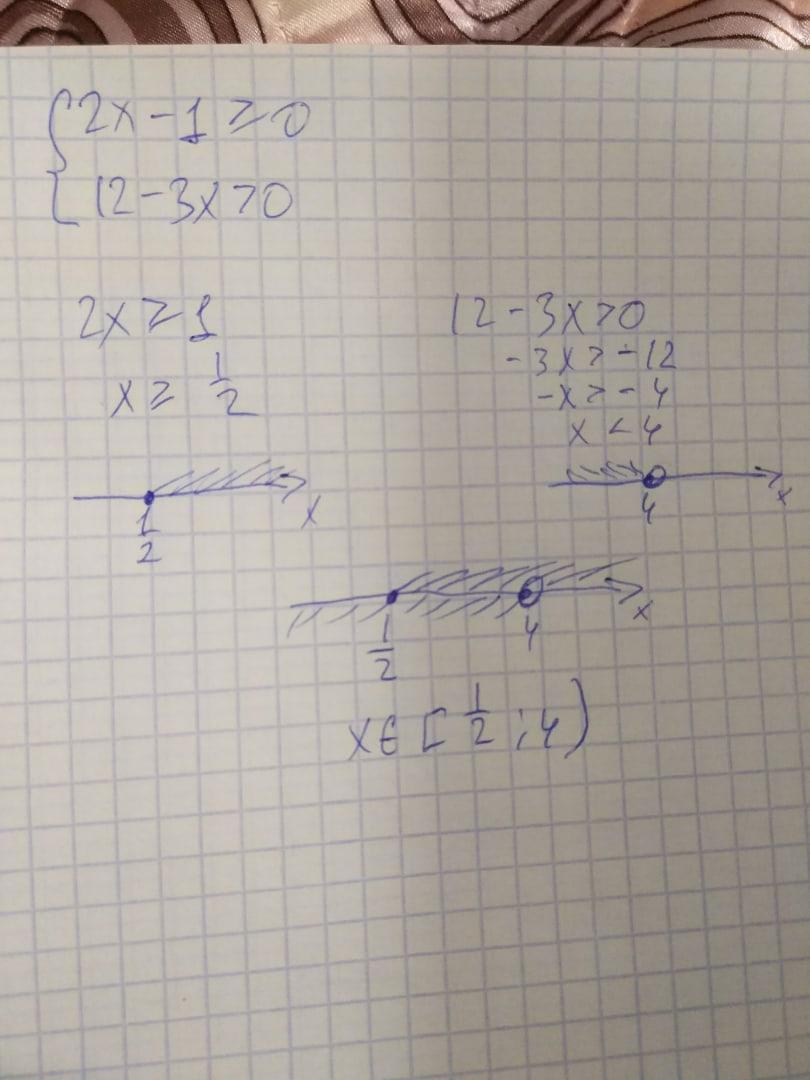 2x - 1 ≥ 0
12 - 3x > 0
2x ≥ 1
x ≥ 1/2
12 - 3x > 0
-3x > -12
-x > -4
x < 4
1/2 x
4 x
1/2 4 x
x ∈ [1/2 ; 4)